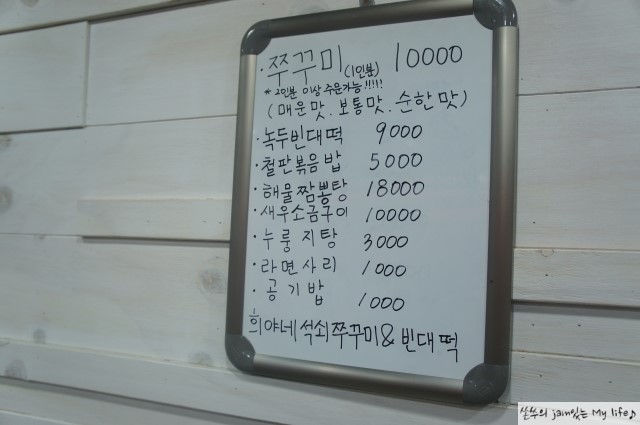 · 쭈꾸미 (1인분) 10000
* 2인분 이상 주문가능!!!!!
(매운맛. 보통맛. 순한맛)
· 녹두빈대떡 9000
· 철판볶음밥 5000
· 해물짬뽕탕 18000
· 새우소금구이 10000
· 누룽지탕 3000
· 라면사리 1000
· 공기밥 1000
희야네석쇠쭈꾸미&빈대떡
쏠쑤의 jain있는 My life♪